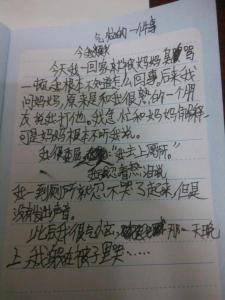 气愤的一件事
今天我一回家就被妈妈骂
一顿,我根本不知道怎么回事。后来我
问妈妈,原来是和我很熟的一个朋
友说出打他。我急忙和妈妈解释
可是妈妈根本不听我说。
我很委屈,"我去上厕所。"
我忍着热泪
我一到厕所就忍不哭了起来,但是
没有发出声音。
此后我很气 那一天晚
上,我躲在被子里哭……